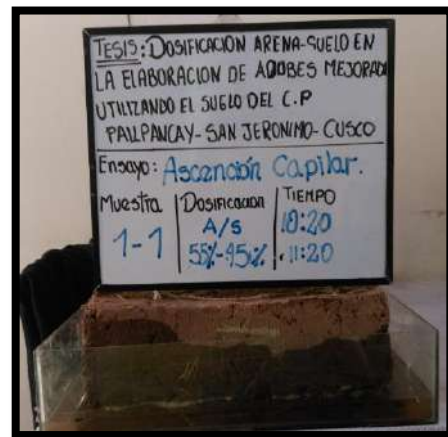 TESIS: DOSIFICACION ARENA-SUELO EN
LA ELABORACION DE ADOBES MEJORADO
UTILIZANDO EL SUELO DEL C.P
PAILPANCAY-SAN JERONIMO-CUSCO
Ensayo: Ascención Capilar.
Muestra Dosificacion TIEMPO
1-1 A/S 10:20
55%-45% 11:20